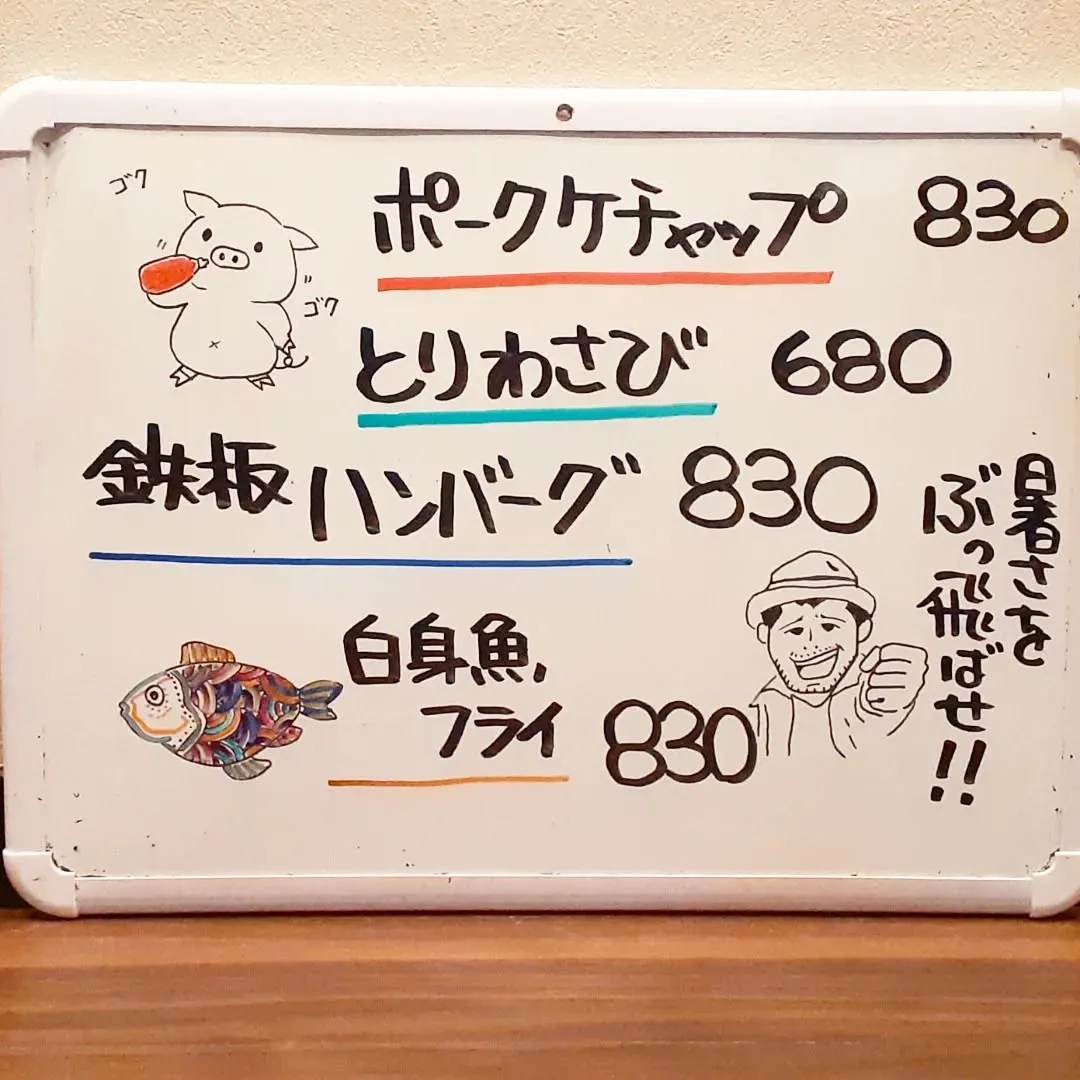 ゴク
ポークケチャップ 830
ゴク
とりわさび 680
鉄板ハンバーグ 830
白身魚
フライ 830
暑さを
ぶっ飛ばせ!!